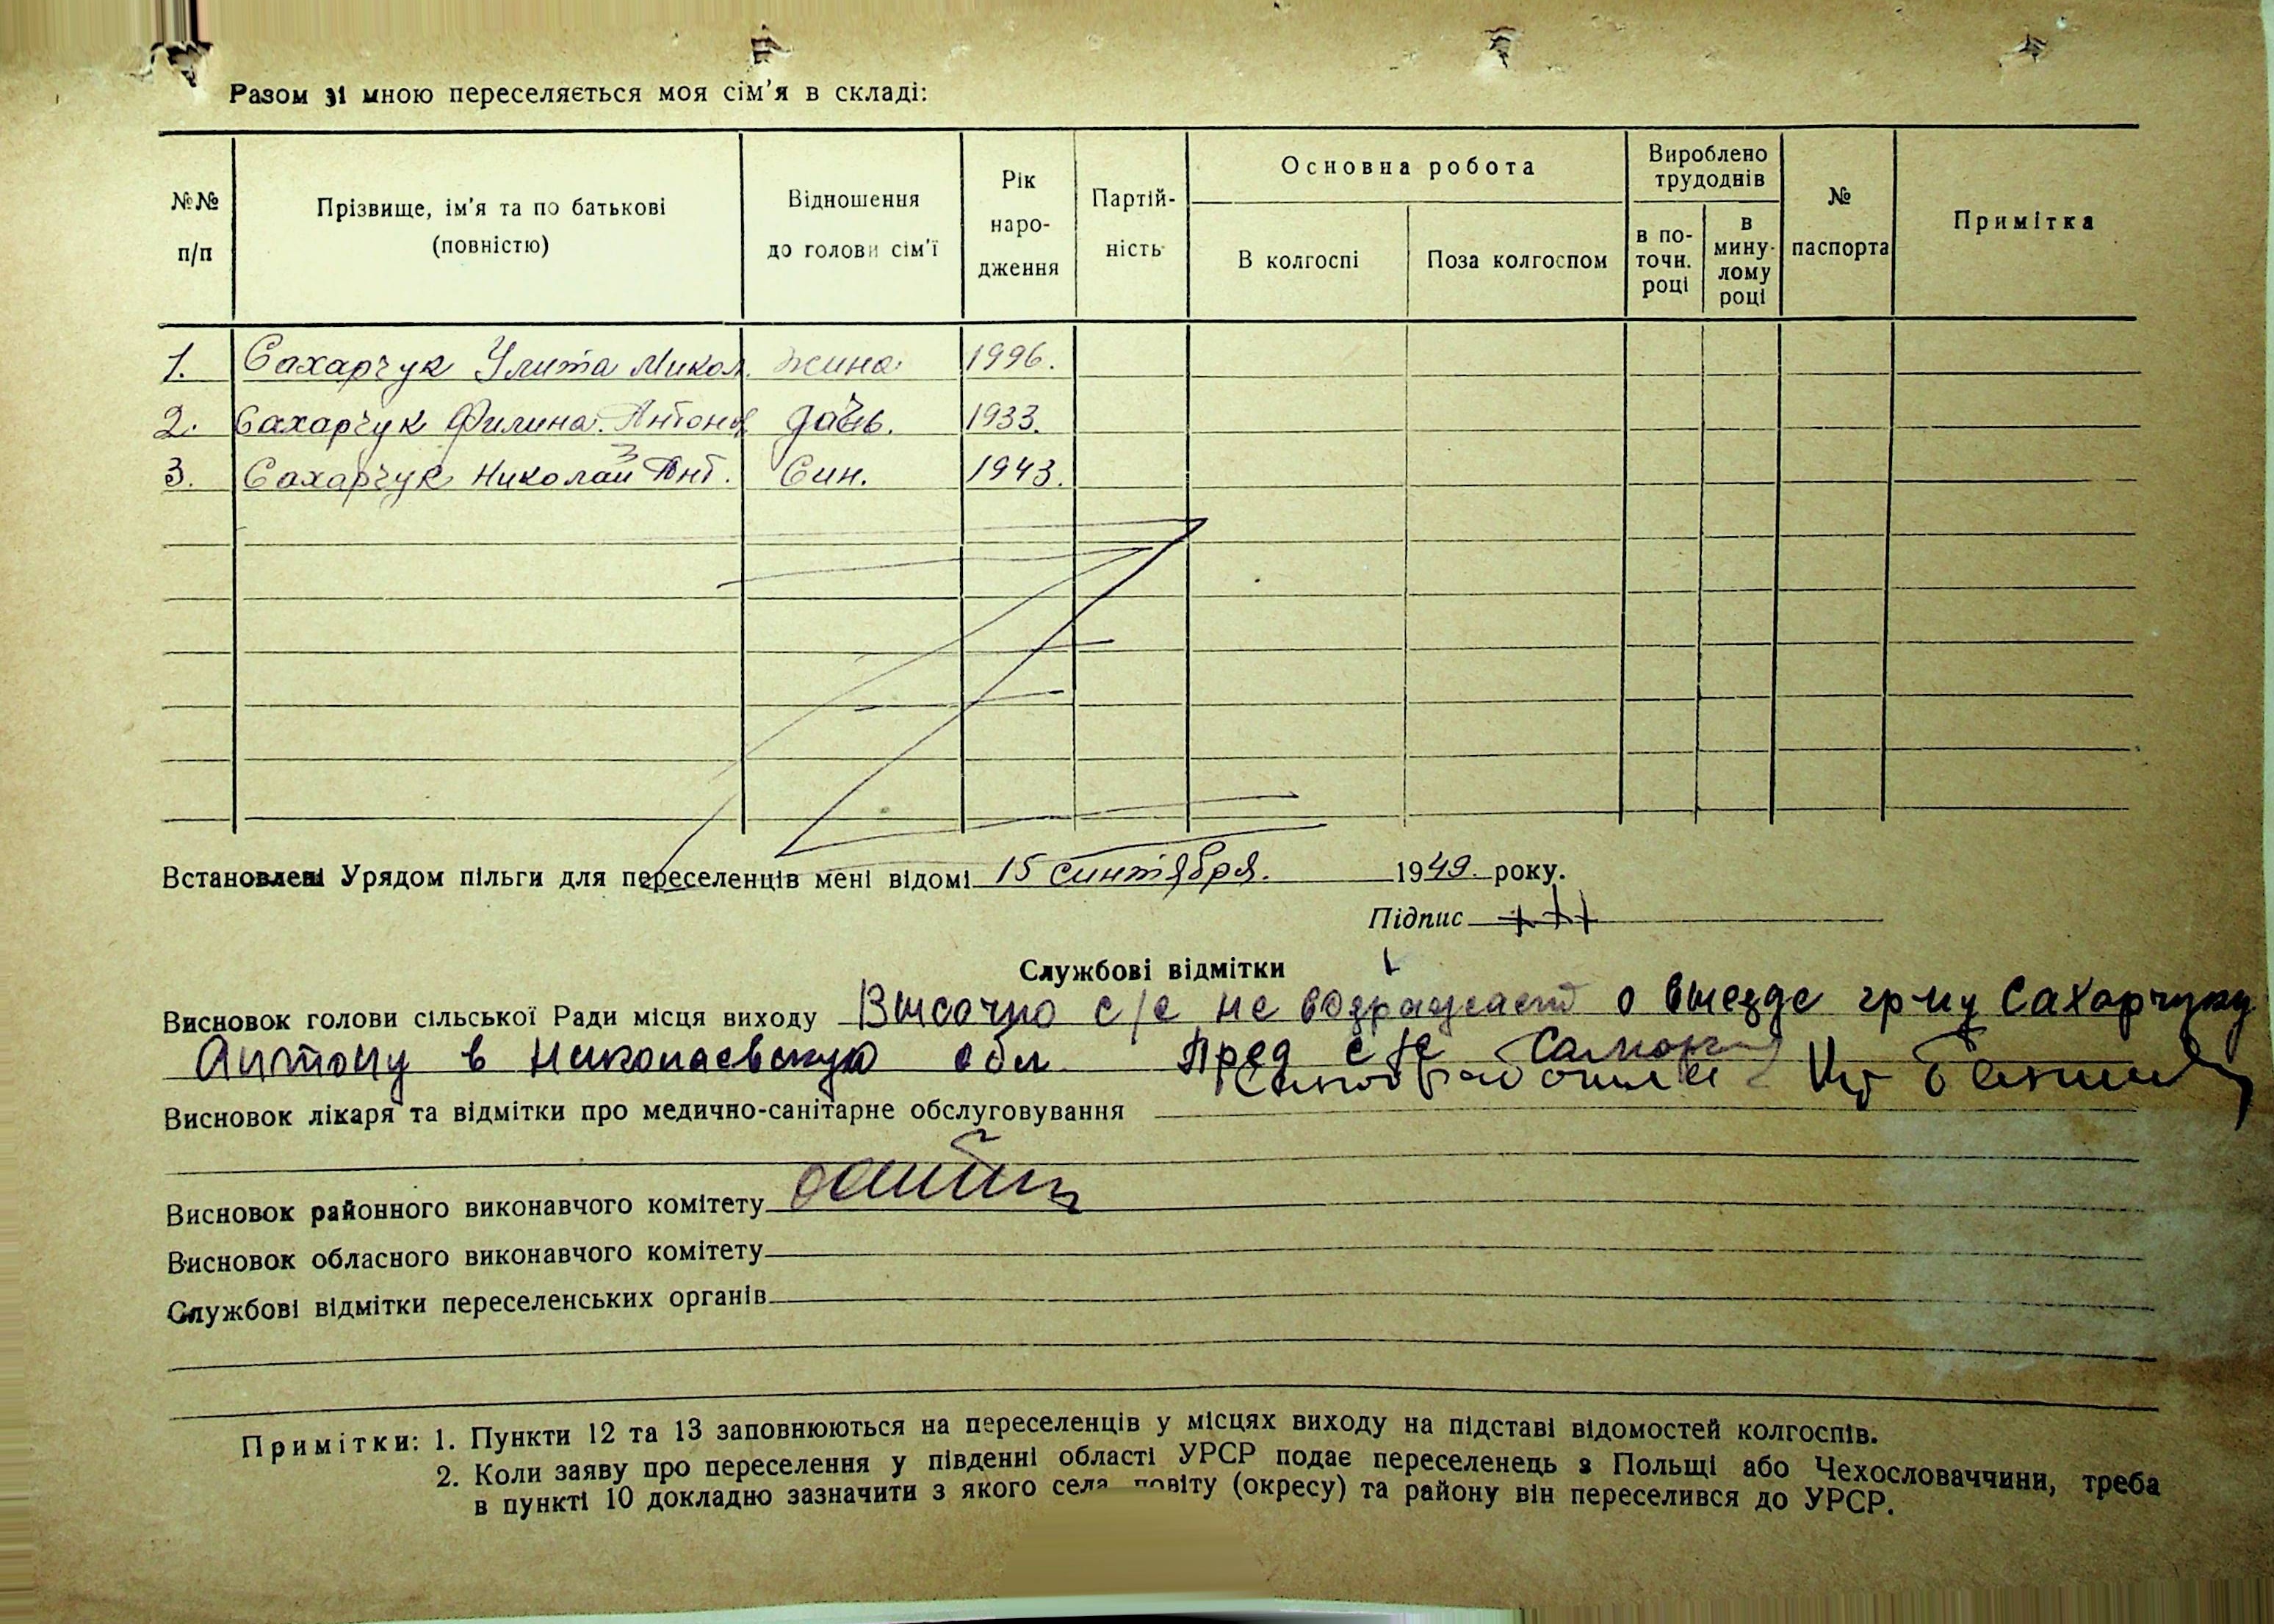 Разом зі мною переселяється моя сім'я в складі:
№№ п/п
Прізвище, ім'я та по батькові (повністю)
Відношення до голови сім'ї
Рік наро- дження
Партій- ність
Основна робота
В колгоспі
Поза колгоспом
Вироблено трудоднів
в по- точн. році
в мину- лому році
№ паспорта
Примітка
1. Сахарчук Улита Микол. жина 1996.
2. Сахарчук Филина Антонов дачь. 1933.
3. Сахарчук Николай Ант. Син. 1943.
Встановлені Урядом пільги для переселенців мені відомі 15 синтября. 1949 року.
Підпис +++
Службові відмітки
Висновок голови сільської Ради місця виходу с/с не возражает о выезде гр-ну Сахарчуку
Антону в Николаевскую обл Пред с/с
Висновок лікаря та відмітки про медично-санітарне обслуговування
Висновок районного виконавчого комітету
Висновок обласного виконавчого комітету
Службові відмітки переселенських органів
Примітки: 1. Пункти 12 та 13 заповнюються на переселенців у місцях виходу на підставі відомостей колгоспів.
2. Коли заяву про переселення у південні області УРСР подає переселенець з Польщі або Чехословаччини, треба
в пункті 10 докладно зазначити з якого села повіту (окресу) та району він переселився до УРСР.